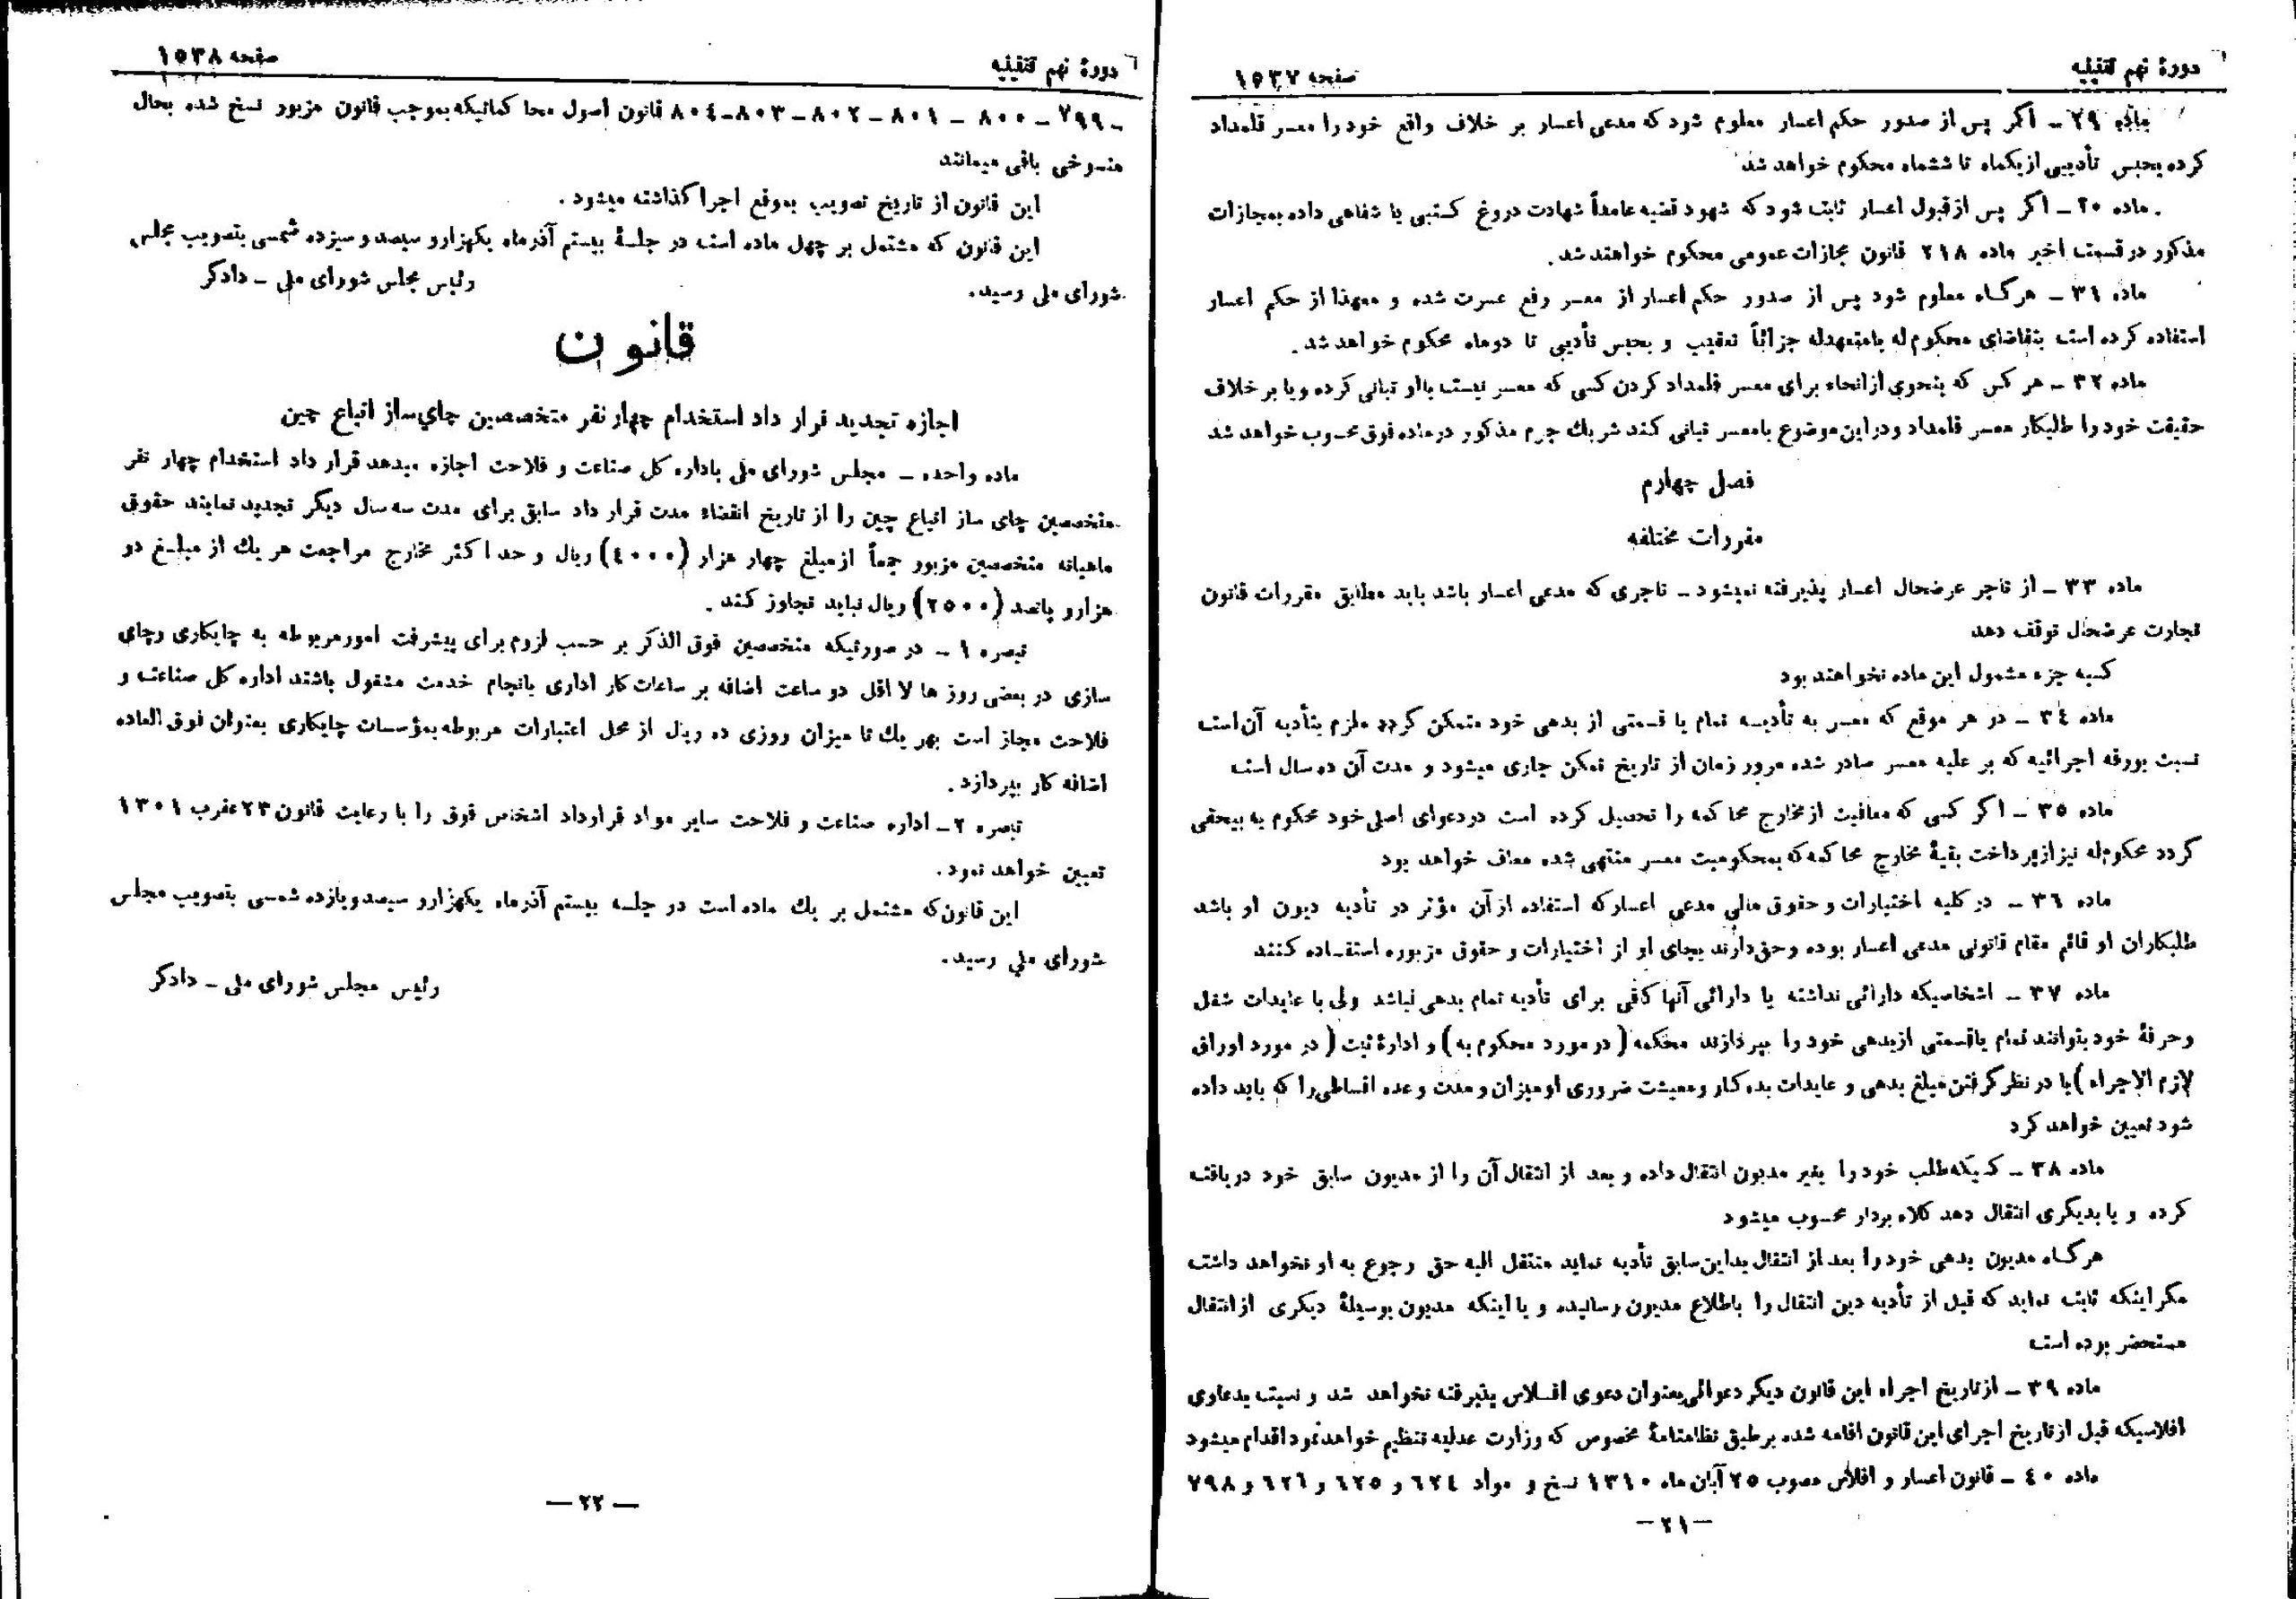 دورهٔ نهم تقنینیه
صفحه ۱۵۳۷
ماده ۲۹ ـ اگر پس از صدور حکم اعسار معلوم شود که مدعی اعسار بر خلاف واقع خود را معسر قلمداد
کرده بحبس تأدیبی از یکماه تا ششماه محکوم خواهد شد
ماده ۳۰ ـ اگر پس از قبول اعسار ثابت شود که شهود قضیه عامداً شهادت دروغ کتبی یا شفاهی داده بمجازات
مذکور در قسمت اخیر ماده ۲۱۸ قانون مجازات عمومی محکوم خواهند شد.
ماده ۳۱ ـ هرگاه معلوم شود پس از صدور حکم اعسار از معسر رفع عسرت شده و معهذا از حکم اعسار
استفاده کرده است بتقاضای محکوم له یا متعهدله جزائاً تعقیب و بحبس تأدیبی تا دوماه محکوم خواهد شد.
ماده ۳۲ ـ هر کس که بنحوی از انحاء برای معسر قلمداد کردن کسی که معسر نیست با او تبانی کرده و یا بر خلاف
حقیقت خود را طلبکار معسر قلمداد و در این موضوع با معسر تبانی کند شریك جرم مذکور در ماده فوق محسوب خواهد شد
فصل چهارم
مقررات مختلفه
ماده ۳۳ ـ از تاجر عرضحال اعسار پذیرفته نمیشود ـ تاجری که مدعی اعسار باشد باید مطابق مقررات قانون
تجارت عرضحال توقف دهد
کسبه جزء مشمول این ماده نخواهند بود
ماده ۳٤ ـ در هر موقع که معسر به تأدیه تمام یا قسمتی از بدهی خود متمکن گردد ملزم بتأدیه آن است
نسبت بورقه اجرائیه که بر علیه معسر صادر شده مرور زمان از تاریخ تمکن جاری میشود و مدت آن ده سال است
ماده ۳۵ ـ اگر کسی که معافیت از مخارج محاکمه را تحصیل کرده است در دعوای اصلی خود محکوم به بیحقی
گردد محکوم له نیز از پرداخت بقیهٔ مخارج محاکمه که بمحکومیت معسر منتهی شده معاف خواهد بود
ماده ۳٦ ـ در کلیه اختیارات و حقوق مالی مدعی اعسار که استفاده از آن مؤثر در تأدیه دیون او باشد
طلبکاران او قائم مقام قانونی مدعی اعسار بوده و حق دارند بجای او از اختیارات و حقوق مزبوره استفاده کنند
ماده ۳۷ ـ اشخاصیکه دارائی نداشته یا دارائی آنها کافی برای تأدیه تمام بدهی نباشد ولی با عایدات شغل
و حرفهٔ خود بتوانند تمام یا قسمتی از بدهی خود را بپردازند محکمه (در مورد محکوم به) و ادارهٔ ثبت (در مورد اوراق
لازم الاجراء) با در نظر گرفتن مبلغ بدهی و عایدات بدهکار و معیشت ضروری او میزان و مدت و عده اقساطی را که باید داده
شود تعیین خواهد کرد
ماده ۳۸ ـ کسیکه طلب خود را بغیر مدیون انتقال داده و بعد از انتقال آن را از مدیون سابق خود دریافت
کرده و یا بدیگری انتقال دهد کلاه بردار محسوب میشود
هرگاه مدیون بدهی خود را بعد از انتقال بداین سابق تأدیه نماید منتقل الیه حق رجوع به او نخواهد داشت
مگر اینکه ثابت نماید که قبل از تأدیه دین انتقال را باطلاع مدیون رسانیده و یا اینکه مدیون بوسیلهٔ دیگری از انتقال
مستحضر بوده است
ماده ۳۹ ـ از تاریخ اجراء این قانون دیگر دعوائی بعنوان دعوی افلاس پذیرفته نخواهد شد و نسبت بدعاوی
افلاسیکه قبل از تاریخ اجرای این قانون اقامه شده بر طبق نظامنامهٔ مخصوص که وزارت عدلیه تنظیم خواهد نمود اقدام میشود
ماده ٤۰ ـ قانون اعسار و افلاس مصوب ۲۵ آبان ماه ۱۳۱۰ نسخ و مواد ٦۲٤ و ٦۲۵ و ٦۲٦ و ۷۹۸
ـ ۲۱ ـ
دورهٔ نهم تقنینیه
صفحه ۱۵۳۸
ـ ۷۹۹ ـ ۸۰۰ ـ ۸۰۱ ـ ۸۰۲ ـ ۸۰۳ ـ ۸۰٤ قانون اصول محاکماتیکه بموجب قانون مزبور نسخ شده بحال
منسوخی باقی میمانند
این قانون از تاریخ تصویب بموقع اجرا گذاشته میشود.
این قانون که مشتمل بر چهل ماده است در جلسهٔ بیستم آذرماه یکهزار و سیصد و سیزده شمسی بتصویب مجلس
شورای ملی رسید.
رئیس مجلس شورای ملی ـ دادگر
قانون
اجازه تجدید قرار داد استخدام چهار نفر متخصصین چای ساز اتباع چین
ماده واحده ـ مجلس شورای ملی باداره کل صناعت و فلاحت اجازه میدهد قرار داد استخدام چهار نفر
متخصصین چای ساز اتباع چین را از تاریخ انقضاء مدت قرار داد سابق برای مدت سه سال دیگر تجدید نمایند حقوق
ماهیانه متخصصین مزبور جمعاً از مبلغ چهار هزار (٤۰۰۰) ریال و حداکثر مخارج مراجعت هر یك از مبلغ دو
هزار و پانصد (۲۵۰۰) ریال نباید تجاوز کند.
تبصره ۱ ـ در صورتیکه متخصصین فوق الذکر بر حسب لزوم برای پیشرفت امور مربوطه به چایکاری و چای
سازی در بعضی روز ها لا اقل دو ساعت اضافه بر ساعات کار اداری بانجام خدمت مشغول باشند اداره کل صناعت و
فلاحت مجاز است بهر یك تا میزان روزی ده ریال از محل اعتبارات مربوطه بمؤسسات چایکاری بعنوان فوق العاده
اضافه کار بپردازد.
تبصره ۲ ـ اداره صناعت و فلاحت سایر مواد قرارداد اشخاص فوق را با رعایت قانون ۲۳ عقرب ۱۳۰۱
تعیین خواهد نمود.
این قانون که مشتمل بر یك ماده است در جلسه بیستم آذرماه یکهزار و سیصد و یازده شمسی بتصویب مجلس
شورای ملی رسید.
رئیس مجلس شورای ملی ـ دادگر
ـ ۲۲ ـ